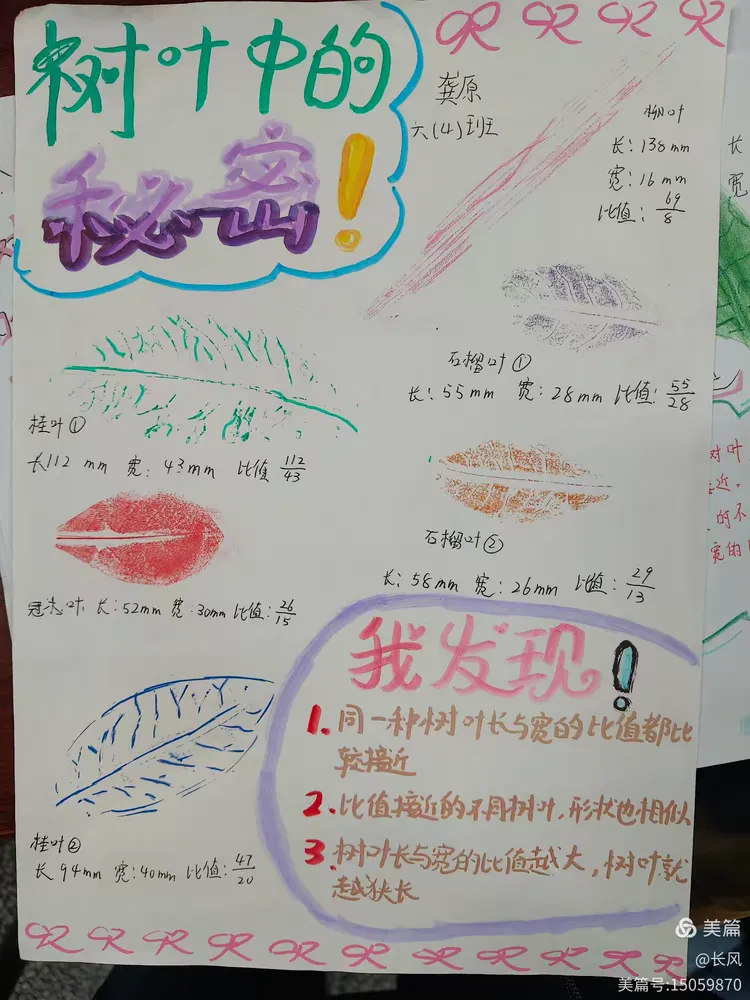 树叶中的
秘密！
龚原
六(4)班
柳叶
长：138mm
宽：16mm
比值：69/8
石榴叶①
长：55mm 宽：28mm 比值：55/28
桂叶①
长112mm 宽：43mm 比值 112/43
石榴叶②
长：58mm 宽：26mm 比值：29/13
叶 长：52mm 宽：30mm 比值：26/15
桂叶②
长94mm 宽：40mm 比值：47/20
我发现！
1.同一种树叶长与宽的比值都比
较接近
2.比值接近的不同树叶，形状也相似
3.树叶长与宽的比值越大，树叶就
越狭长
长
宽
对叶
近，
的不
宽的
美篇
@长风
美篇号:15059870